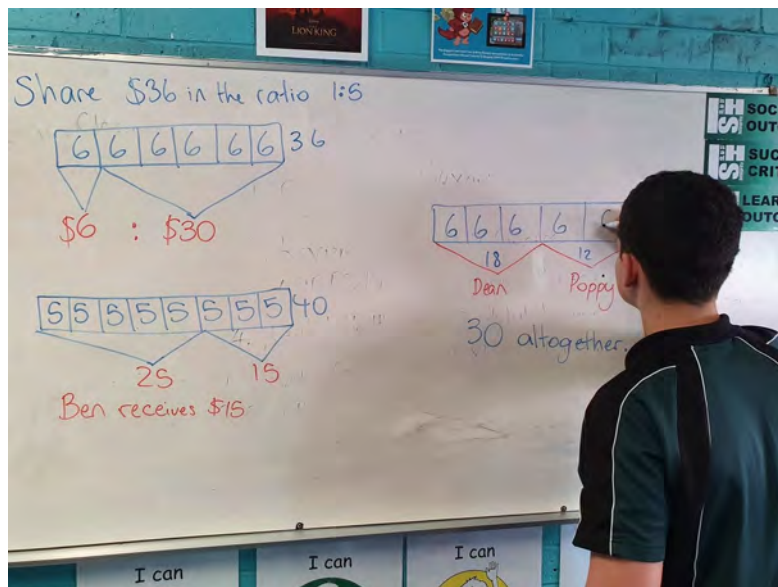 LION KING
Share $36 in the ratio 1:5
6 6 6 6 6 6 36
$6 : $30
5 5 5 5 5 5 5 5 40
25 15
Ben receives $15
6 6 6 6
18 12
Dean Poppy
30 altogether.
SOC
OUT
SUC
CRIT
LEAR
OUTC
I can
I can
I can